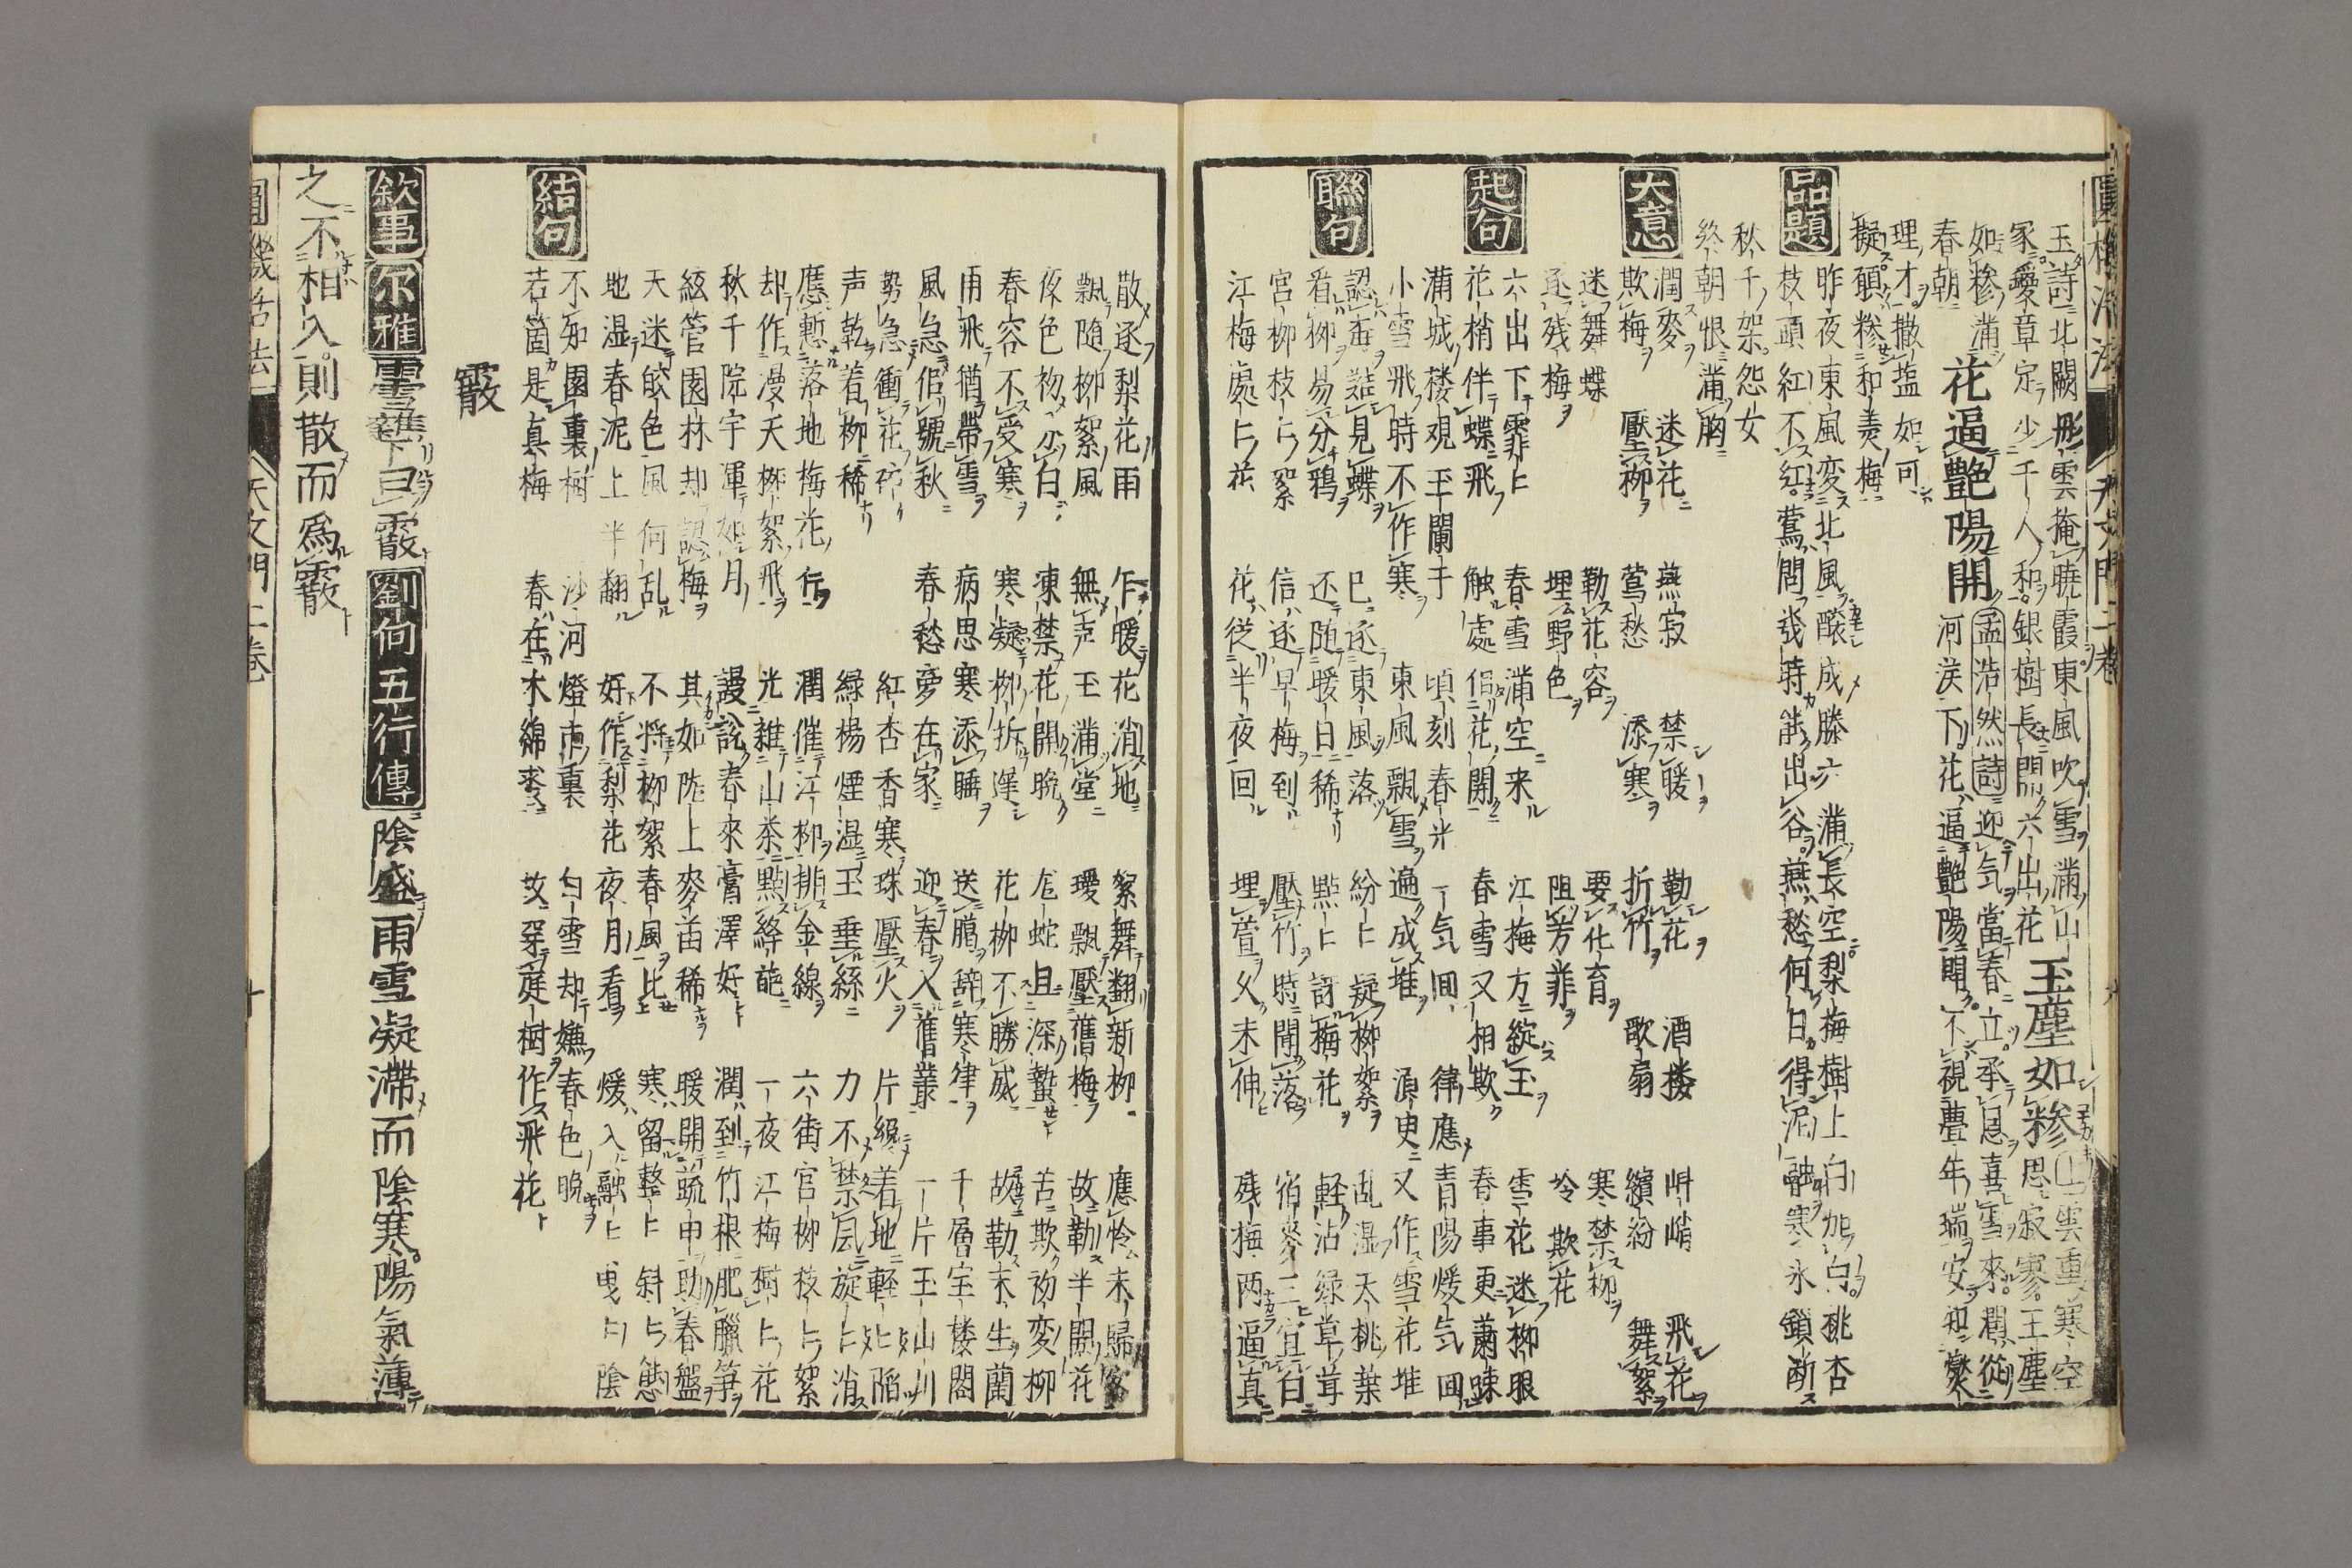 圓機活法 天文門二卷 九
玉詩北闕彤雲掩曉霞東風吹雪滿山
家瓊章定少千人和銀樹長開六出花 玉塵如糝 上 雲重寒空
思寂寥玉塵
如糝滿
春朝 花逼艷陽開 孟浩然詩 迎气當春立承恩喜雪來潤從
河漢下花逼艷陽開不視豊年瑞安知燮
理才撒塩如可
擬願糝和羹梅
品題 昨夜東風变北風釀成滕六滿長空梨梅樹上白加白桃杏
枝頭紅不紅鶯問幾時能出谷燕愁何日得泥融寒氷鎖断
秋千架怨女
終朝恨滿胸
大意 潤麥 迷花 燕寂 禁暖 勒花 酒楼 峭 飛花
欺梅 壓柳 鶯愁 添寒 折竹 歌扇 繽紛 舞絮
迷舞蝶 勒花容 要化育 寒禁柳
逐残梅 埋野色 阻芳菲 冷欺花
起句 六出下霏ヒ 春雪滿空来 江梅方綻玉 雪花迷柳眼
花梢伴蝶飛 触處似花開 春雪又相欺 春事更蕭踈
滿城楼观玉闌干 頃刻春光一气囬 律應青陽煖气囬
小雪飛時不作寒 東風飄雪遍成堆 須臾又作雪花堆
聯句 認逕誰見蝶 已逐東風落 紛ヒ疑柳絮 乱湿夭桃葉
看柳易分鴉 还随暖日稀 點ヒ訝梅花 軽沾绿草茸
宮柳枝ヒ絮 信逐早梅到 壓竹時聞落 宿麥三宜白
江梅處ヒ花 花従半夜回 埋萱久未伸 残梅两逼真
散逐梨花雨 乍暖花消地 絮舞翻新柳 應怜未歸客
飄随柳絮風 無声玉滿堂 瓊飄壓舊梅 故勒半開花
夜色初分白 凍禁花開晚 虺蛇且深蟄 苦欺初变柳
春容不受寒 寒凝柳折遅 花柳不勝威 故勒未生蘭
雨飛猶帶雪 病思寒添睡 送臈辞寒律 千層宝楼閣
風急似號秋 春愁夢在家 迎春入舊叢 一片玉山川
勢急衝花碎 紅杏香寒珠壓火 片緩着地軽ヒ陷
声乾着柳稀 绿楊煙湿玉垂絲 力不禁風旋ヒ消
應慙落地梅花行 潤催江柳排金線 六街官柳枝ヒ絮
却作漫天柳絮飛 光雜山茶點絳葩 一夜江梅樹ヒ花
秋千院宇渾如月 謾説春來膏澤好 潤到竹根肥臘笋
絃管園林却認梅 其如陇上麥苗稀 暖開蔬甲助春盤
天迷皎色風何乱 不将柳絮春風比 寒留整ヒ斜ヒ態
地湿春泥上半翻 好作梨花夜月看 煖入融ヒ曳ヒ陰
結句 不知園裏樹 沙河燈市裏 白雪却嫌春色晚
若箇是真梅 春在木綿裘 故穿庭樹作飛花
霰
敘事 尔雅 雪雜下曰霰 劉向五行傳 陰盛雨雪凝滯而陰寒陽氣薄
之不相入則散而爲霰
圓機活法 天文門二卷 十